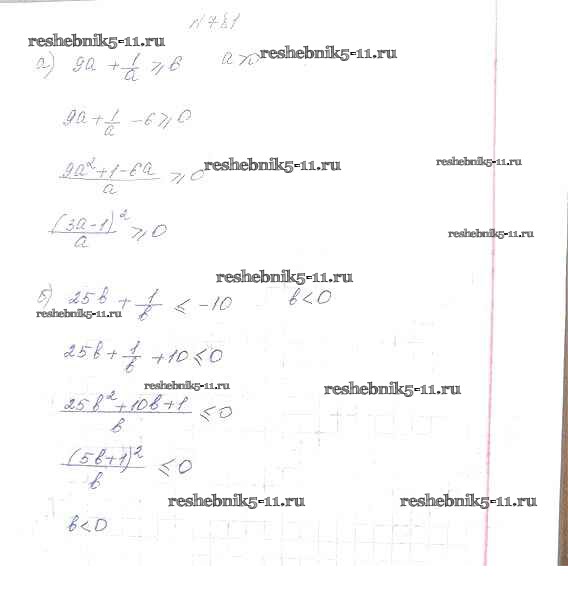 N781
reshebnik5-11.ru
а) 9a + 1/a ≥ 6 a ≥ reshebnik5-11.ru
9a + 1/a - 6 ≥ 0
(9a² + 1 - 6a)/a ≥ 0 reshebnik5-11.ru reshebnik5-11.ru
(3a - 1)²/a ≥ 0 reshebnik5-11.ru
reshebnik5-11.ru
б) 25b + 1/b ≤ -10 b < 0
reshebnik5-11.ru
25b + 1/b + 10 ≤ 0
reshebnik5-11.ru reshebnik5-11.ru
(25b² + 10b + 1)/b ≤ 0
(5b + 1)²/b ≤ 0
reshebnik5-11.ru reshebnik5-11.ru
b < 0